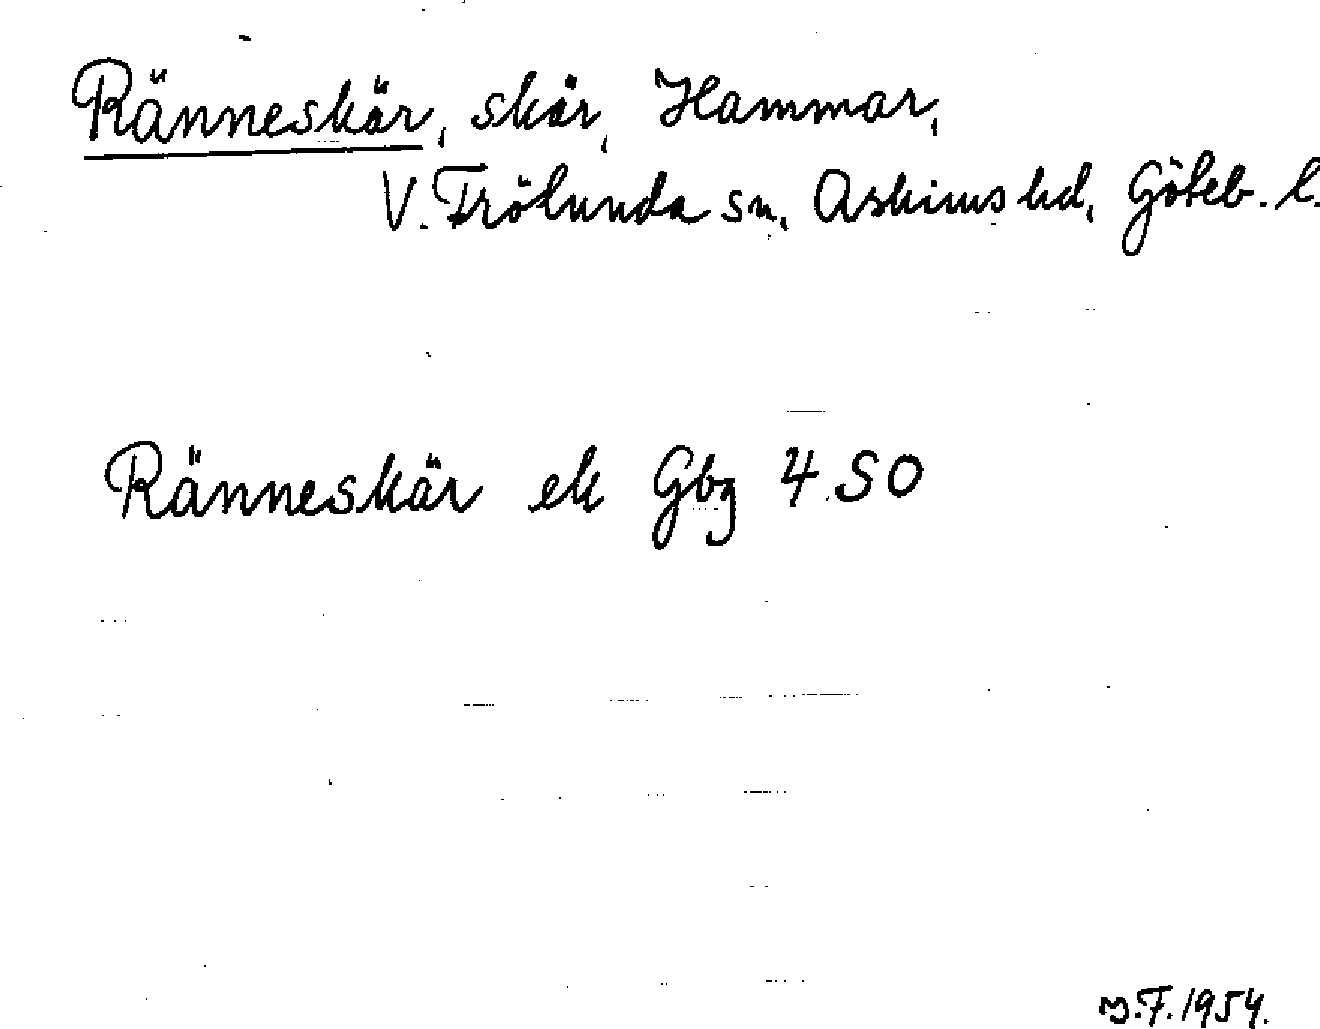 Ränneskär, skär, Hammar,
V. Frölunda sn, Askims hd, Göteb. l.
Ränneskär ek Gbg 4 SO
F. 1954.